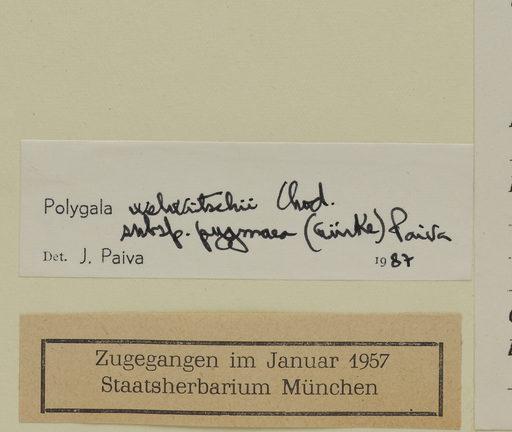 Polygala welwitschii Chod.
subsp. pygmaea (Gürke) Paiva
Det. J. Paiva 1987
Zugegangen im Januar 1957
Staatsherbarium München